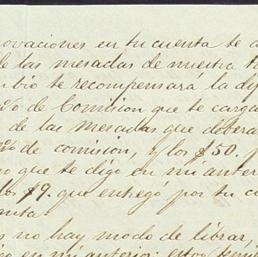 ovaciones en tu cuenta te a
de las mesadas de nuestra
bio te recompensará la di
% de Comision que te carg
de las Mesadas que debera
% de comision, y los $50. p
o que te digo en mi anter
lo $9. que entregó por tu c
enta
s no hay modo de librar,
en mi anterior: estoy